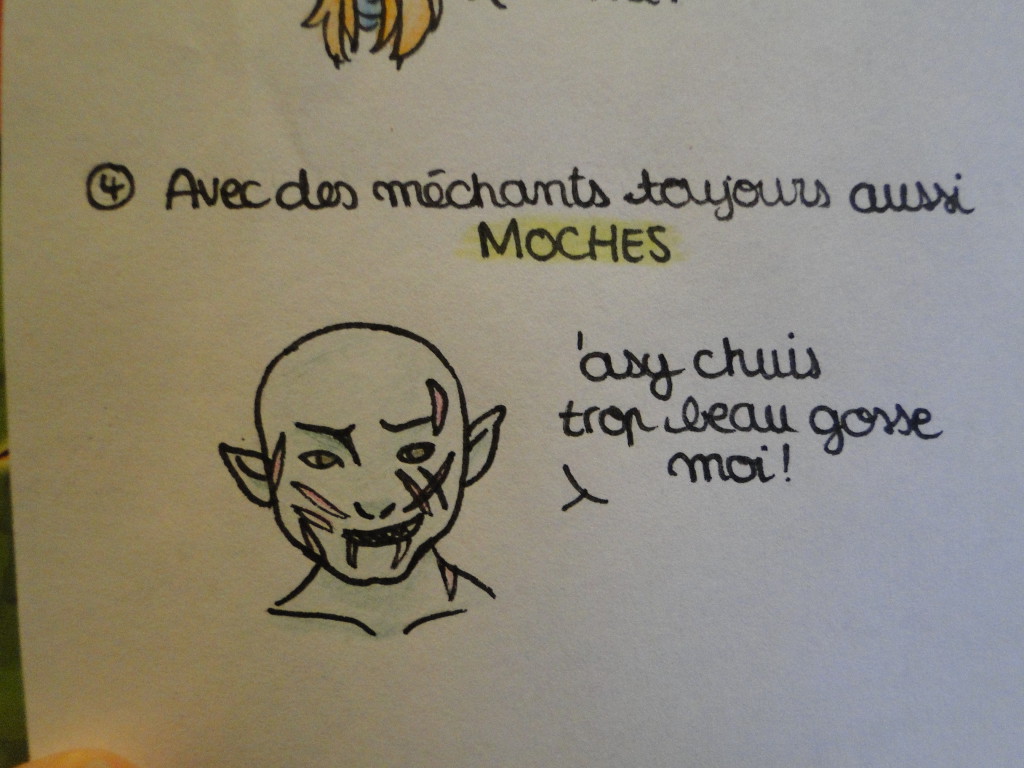 ④ Avec des méchants toujours aussi
MOCHES
'asy chuis
trop beau gosse
moi!